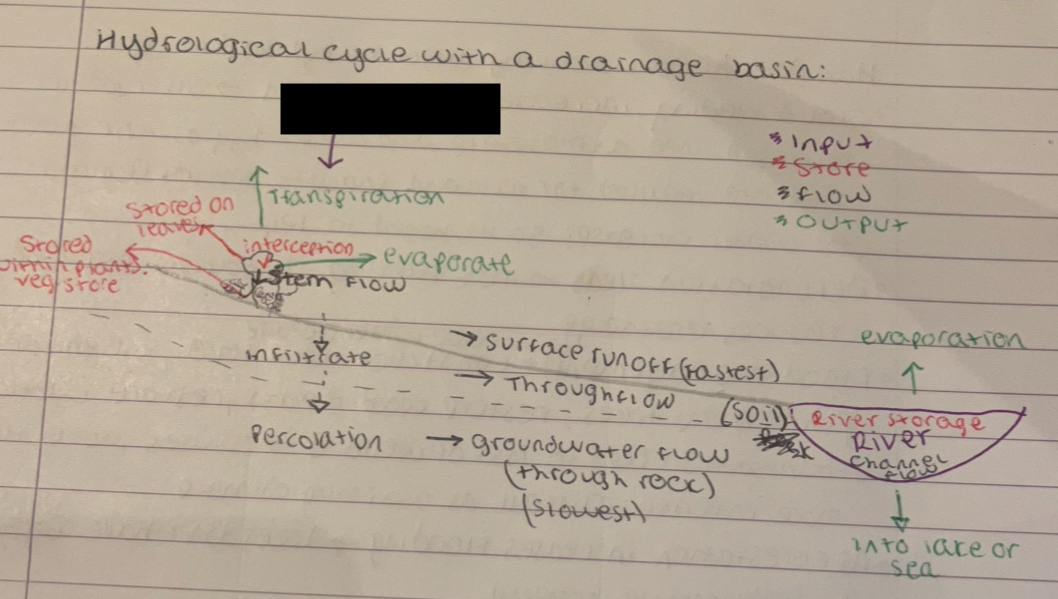 Hydrological cycle with a drainage basin:
* Input
* Store
* Flow
* Output
Transpiration
Stored on
leaves
interception
evaporate
Stored
plants.
veg store
Stem Flow
infiltrate
→ surface runoff (fastest)
→ Throughflow
(soil)
evaporation
River storage
River
channel
flow
Percolation
→ groundwater flow
(through rock)
(slowest)
into lake or
sea